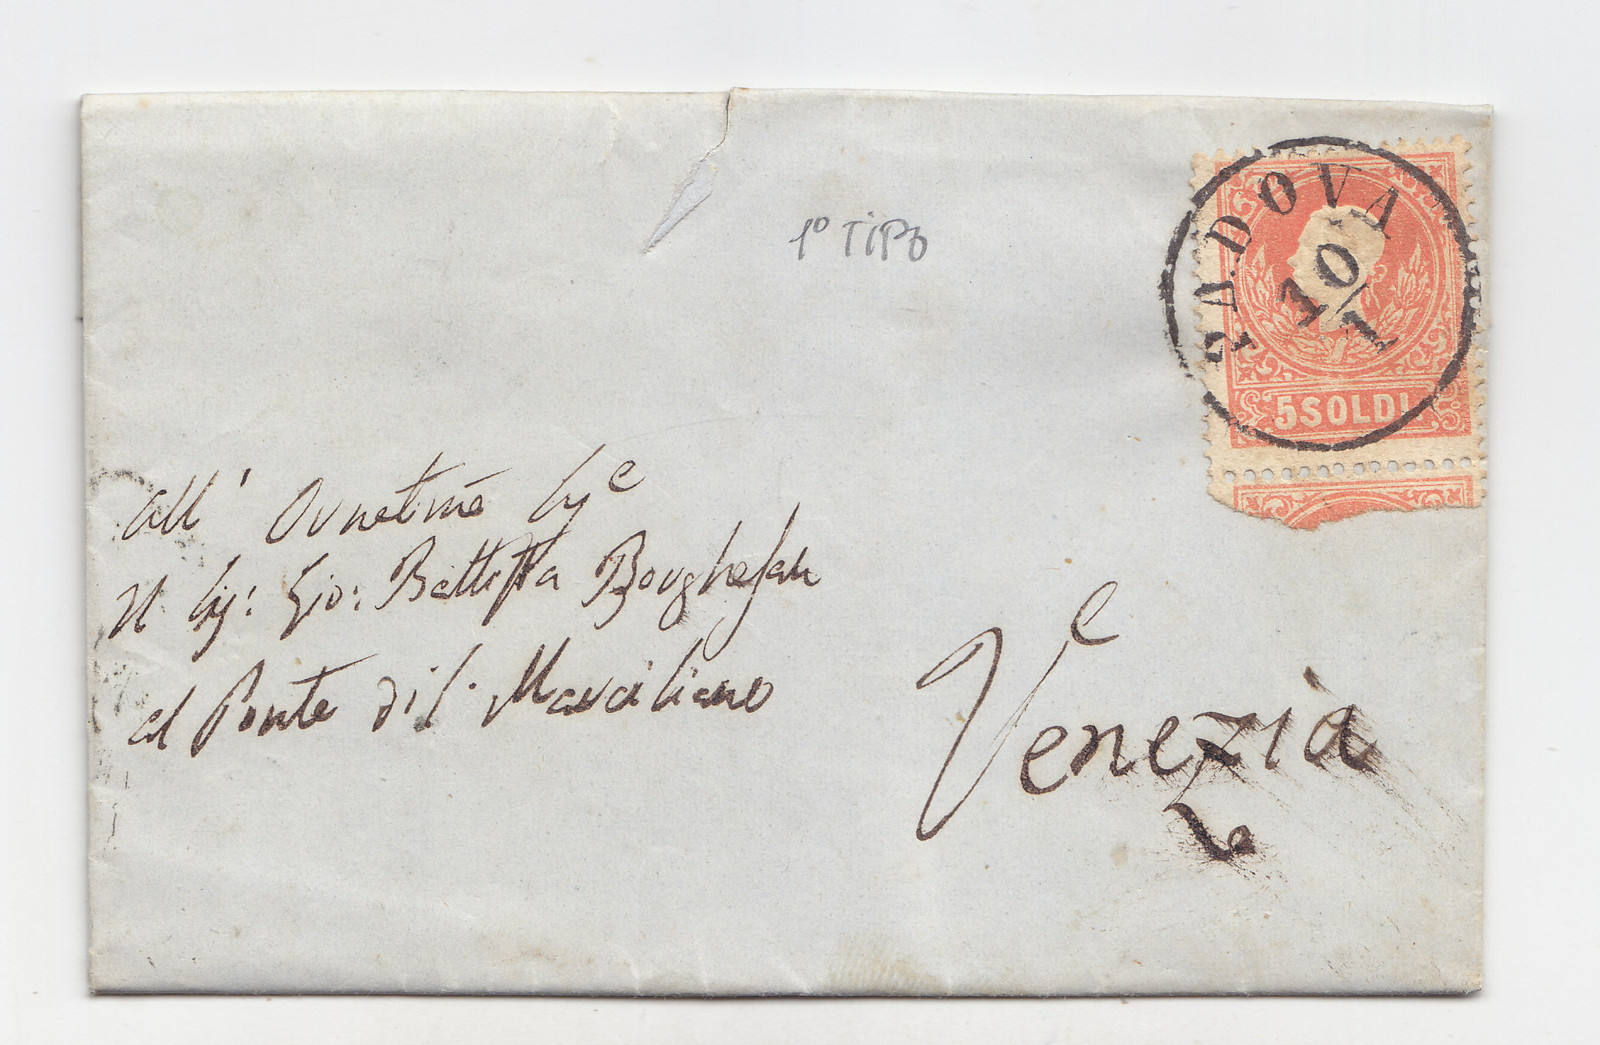 1º TIPO
PADOVA
10/1
5 SOLDI.
All'
Il Sig: Gio: Battista Borghesan
al Ponte di S. Marciliano
Venezia